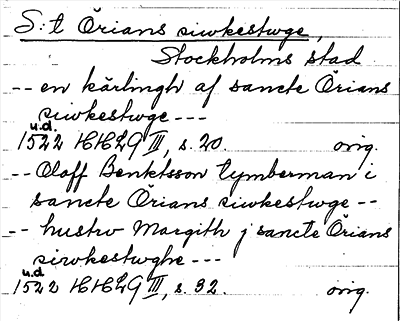 S:t Örians siwkestwge,
Stockholms stad
-- en kärlingh af sancte Örians
siwkestwge ---
u.d.
1522 HH29 III, s. 20. orig.
-- Oloff Benktsson tymberman i
sancte Örians siwkestwge --
-- hustrv Margith j sancte Örians
sivkestwghe ---
u.d
1522 HH29 III, s. 32. orig.